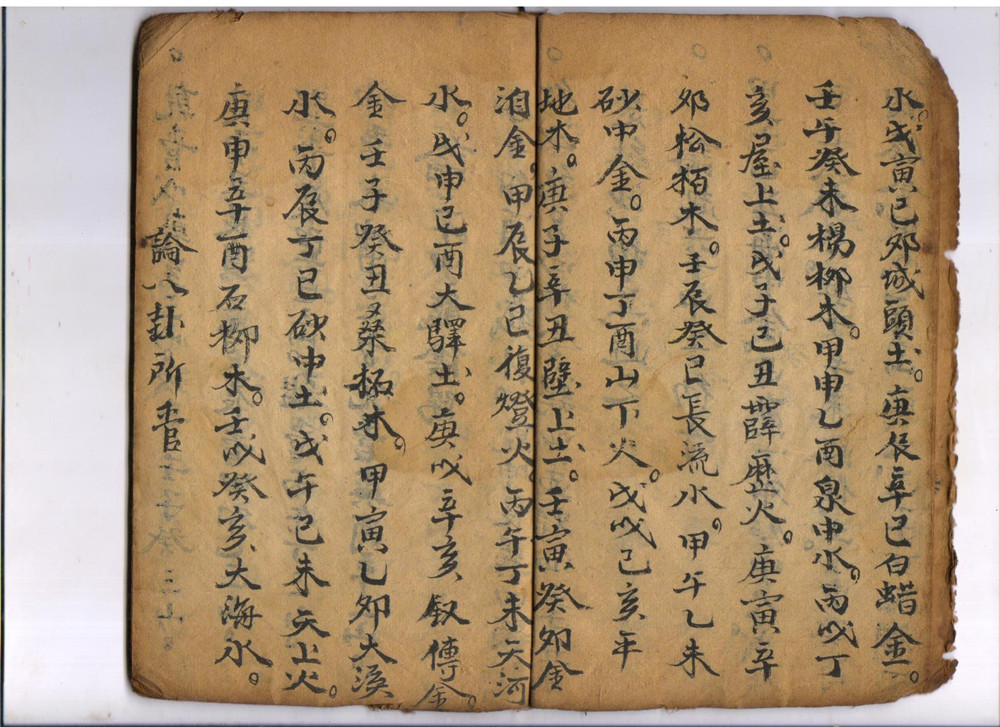 水。戊寅己夘城頭土。庚辰辛巳白蜡金。
壬午癸未楊柳木。甲申乙酉泉中水。丙戌丁
亥屋上土。戊子己丑霹歷火。庚寅辛
夘松栢木。壬辰癸巳長流水。甲午乙未
砂中金。丙申丁酉山下火。戊戌己亥年
地木。庚子辛丑壁上土。壬寅癸夘金
泊金。甲辰乙巳復燈火。丙午丁未天河
水。戊申己酉大驛土。庚戌辛亥釵傳金。
金壬子癸丑桑柘木。甲寅乙夘大溪
水。丙辰丁巳砂中土。戊午己未天上火。
庚申辛酉石柳木。壬戌癸亥大海水。
論八卦所管